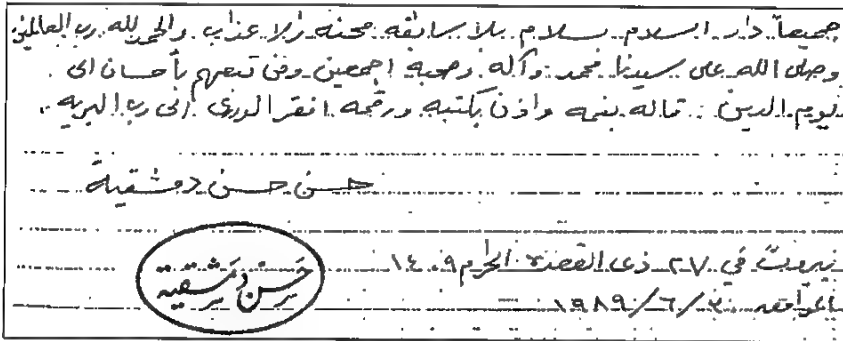 جميعاً دار السلام بسلام بلا سابقه محنه ولا عذاب والحمد لله رب العالمين
وصلى الله على سيدنا محمد وآله وصحبة اجمعين ومن تبعهم بأحسان الى
يوم الدين : قاله بفمه واذن بكتبه ورقمه افقر الورى الى رب البريه .
حسن حسن دمشقية
بيروت في ٢٧ ذي القعدة الحرام ١٤٠٩
الموافق ٣٠/٦/١٩٨٩
حَسَن دِمَشقِية